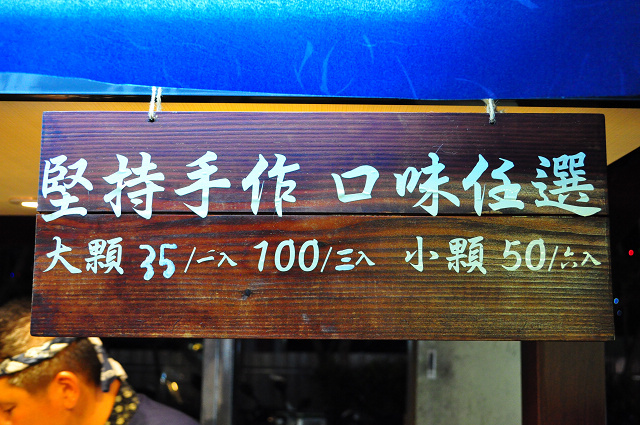 堅持手作 口味任選
大顆 35/二入 100/三入 小顆 50/六入